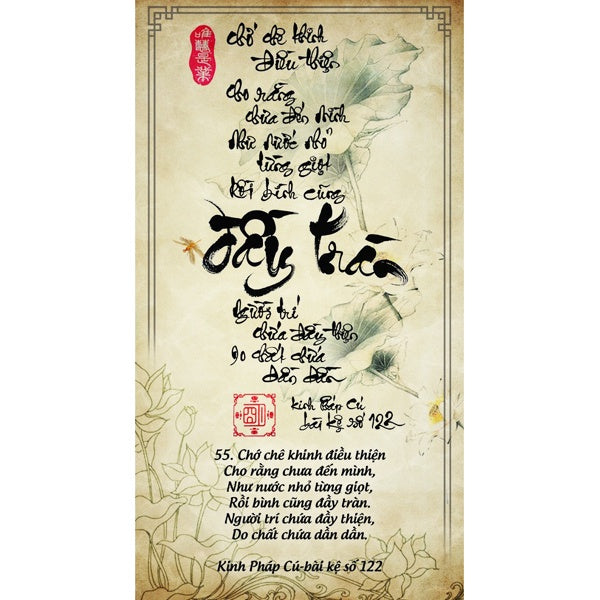 唯慧是業
Chớ chê khinh
Điều thiện
Cho rằng
chưa đến mình
Như nước nhỏ
từng giọt
Rồi bình cũng
Đầy tràn
Người trí
chứa đầy thiện
Do chất chứa
dần dần
Kinh Pháp Cú
bài kệ số 122
55. Chớ chê khinh điều thiện
Cho rằng chưa đến mình,
Như nước nhỏ từng giọt,
Rồi bình cũng đầy tràn.
Người trí chứa đầy thiện,
Do chất chứa dần dần.
Kinh Pháp Cú-bài kệ số 122